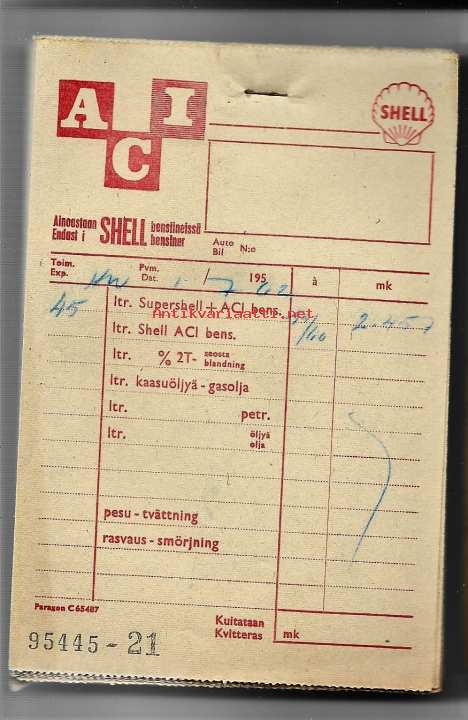 A C I
SHELL
Ainoastaan SHELL bensiineissä
Endast i bensiner
Auto N:o
Bil
Toim. Pvm. 195 à mk
Exp. Dat. 1/7 62
45 ltr. Supershell + ACI bens.
Antikvariaatti.net
ltr. Shell ACI bens. /60
ltr. % 2T- seosta blandning
ltr. kaasuöljyä - gasolja
ltr. petr.
ltr. öljyä olja
pesu - tvättning
rasvaus - smörjning
Paragon C 65487
Kuitataan
Kvitteras mk
95445 - 21